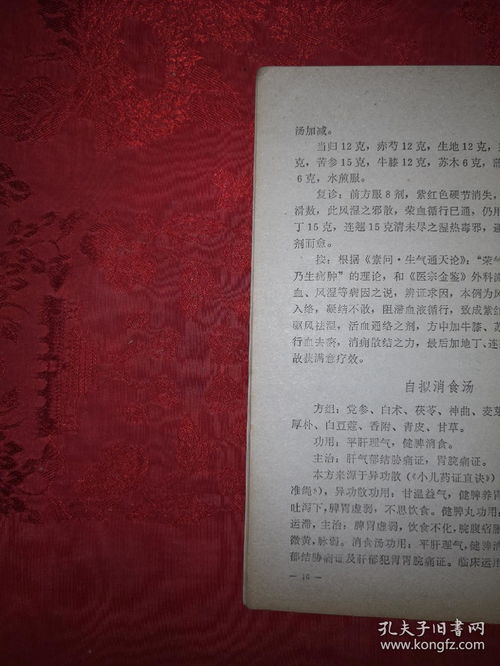 汤加减。
当归12克，赤芍12克，生地12克，
克，苦参15克，牛膝12克，苏木6克，
6克，水煎服。
复诊：前方服8剂，紫红色硬节消失，
滑数，此风湿之邪散，荣血循行已通，仍用
丁15克，连翘15克清未尽之湿热毒邪，
剂而愈。
按：根据《素问·生气通天论》：“荣气
乃生痈肿”的理论，和《医宗金鉴》外科
血、风湿等病因之说，辨证求因，本例为风
入络，凝结不散，阻滞血液循行，致成紫红
驱风祛湿，活血通络之剂，方中加牛膝、苏
行血去瘀，消痈散结之力，最后加地丁、连
故获满意疗效。
自拟消食汤
方组：党参、白术、茯苓、神曲、麦芽
厚朴、白豆蔻、香附、青皮、甘草。
功用：平肝理气，健脾消食。
主治：肝气郁结胁痛证，胃脘痛证。
本方来源于异功散（《小儿药证直诀》）
准绳》），异功散功用：甘温益气，健脾养胃
吐泻下，脾胃虚弱，不思饮食。健脾丸功用
运滞，主治：脾胃虚弱，饮食不化，脘腹痞胀
微黄，脉弱。消食汤功用：平肝理气，健脾消
郁结胁痛证及肝郁犯胃胃脘痛证。临床运用
— 16 —
孔夫子旧书网
www.kongfz.com